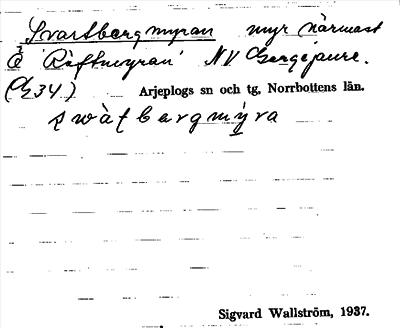 Svartbergmyran myr närmast
Ö Räftmyran NV Gergejaure.
(G34)
Arjeplogs sn och tg, Norrbottens län.
swàtbergmýra
Sigvard Wallström, 1937.